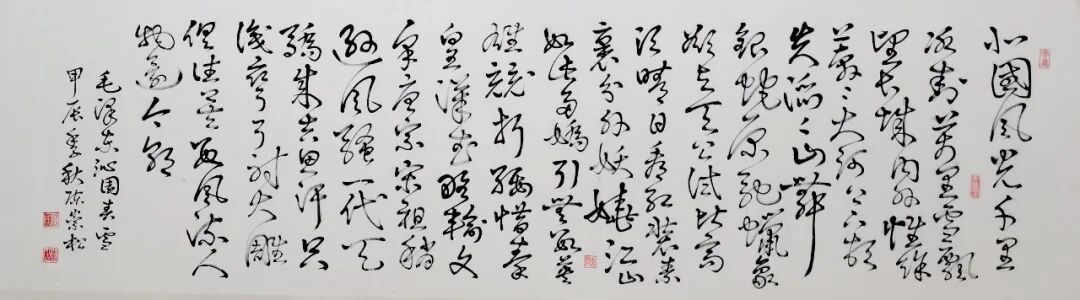 北國風光千里
冰封萬里雪飄
望长城内外惟餘
莽々大河上下頓
失滔々山舞
銀蛇原馳蠟象
欲与天公試比高
须晴日看红装素
裹分外妖娆江山
如此多嬌引無數英
雄競折腰惜秦
皇漢武略輸文
采唐宗宋祖稍
逊風騷一代天
驕成吉思汗只
識弯弓射大雕
俱往矣數風流人
物還看今朝
毛澤东沁園春雪
甲辰季秋陈崇松